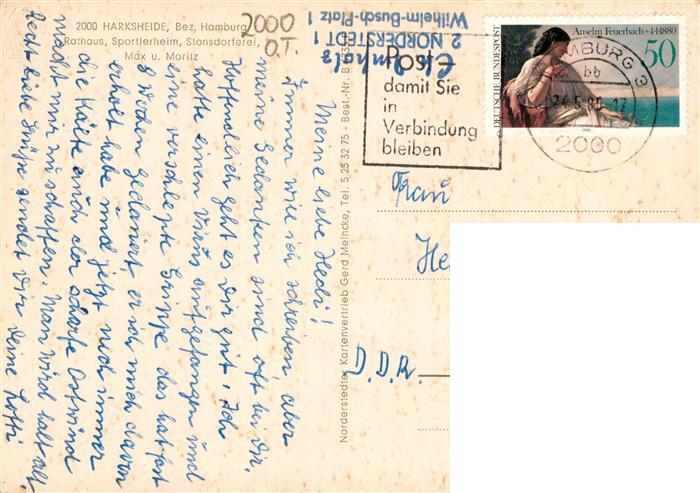 2000 HARKSHEIDE, Bez. Hamburg
Rathaus, Sportlerheim, Stonsdorferei,
Max u. Moritz
2000
O.T.
2 NORDERSTEDT 1
Wilhelm-Busch-Platz 1
Post
damit Sie
in
Verbindung
bleiben
Anselm Feuerbach • 1880
50
DEUTSCHE BUNDESPOST
HAMBURG 3
bb
2000
Norderstedter Kartenvertrieb Gerd Meincke, Tel. 5 25 32 75 - Best.-Nr. B
Meine liebe Hedi!
Immer will ich schreiben aber
meine Gedanken sind oft bei Dir.
Hoffendlich geht es Dir gut, Ich
hatte einen Virus aufgefangen und
eine verschlepte Grippe das hat fast
8 Wochen gedauert, eh ich mich davon
erholt habe und jetzt noch immer
die Kälte auch der scharfe Ostwind
macht mir zu schaffen. Man wird halt alt.
Recht liebe Grüße sendet Dir Deine Lotti
Frau
D.D.R.